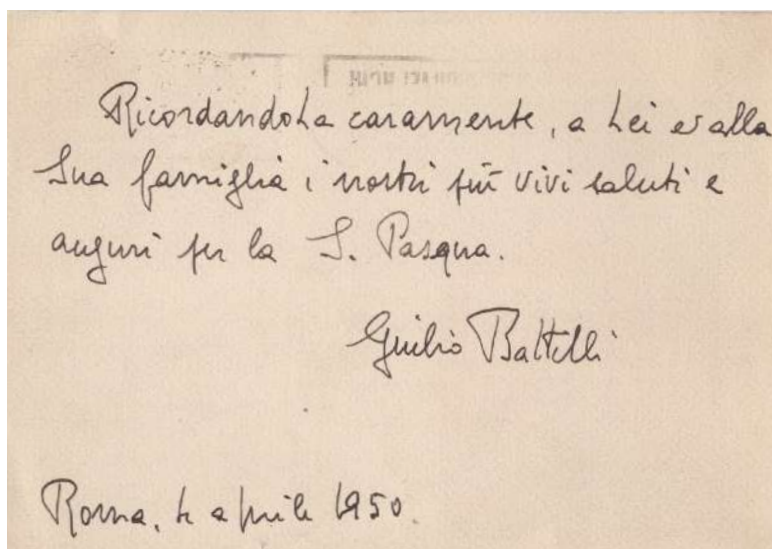 RicordandoLa caramente, a Lei ed alla
Sua famiglia i nostri più vivi saluti e
auguri per la S. Pasqua.
Giulio Battelli
Roma, 4 aprile 1950.